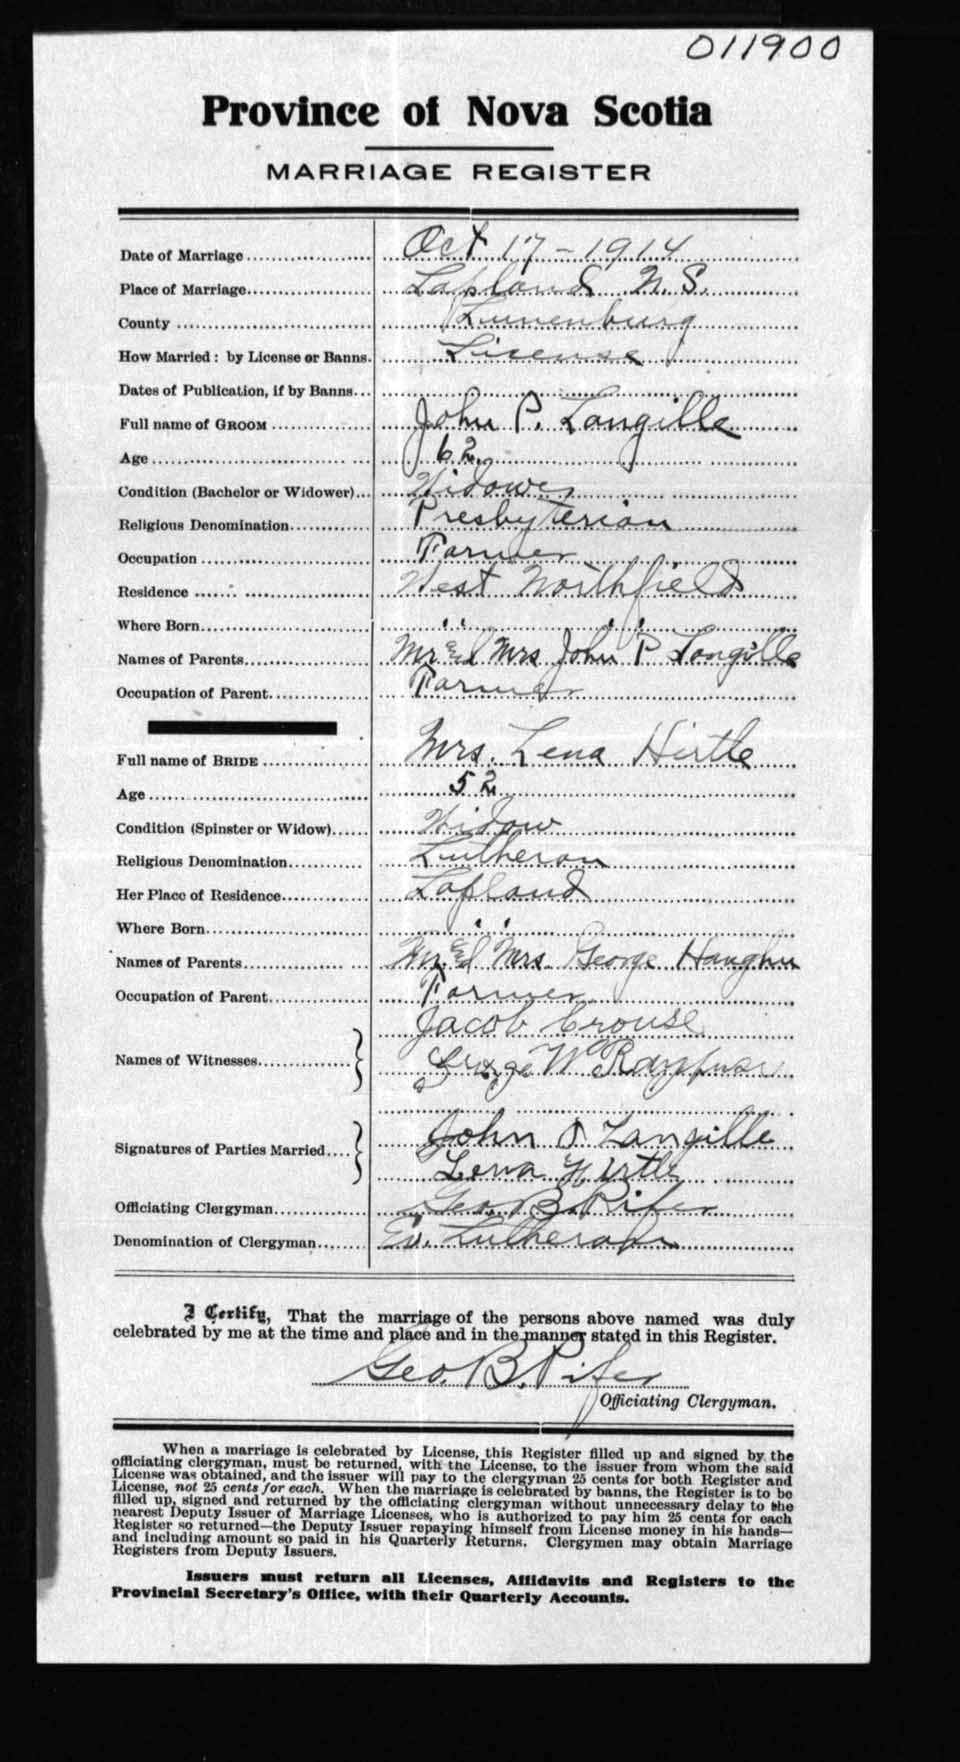 011900
Province of Nova Scotia
MARRIAGE REGISTER
Date of Marriage Oct 17 - 1914
Place of Marriage Lapland N. S.
County Lunenburg
How Married: by License or Banns. License
Dates of Publication, if by Banns
Full name of GROOM John P. Langille
Age 62
Condition (Bachelor or Widower) Widower
Religious Denomination Presbyterian
Occupation Farmer
Residence West Northfield
Where Born " "
Names of Parents Mr & Mrs John P Langille
Occupation of Parent Farmer
Full name of BRIDE Mrs. Lena Hirtle
Age 52
Condition (Spinster or Widow) Widow
Religious Denomination Lutheran
Her Place of Residence Lapland
Where Born " "
Names of Parents Mr. & Mrs George
Occupation of Parent Farmer
Jacob Crouse
Names of Witnesses George W
Signatures of Parties Married John P Langille
Lena Hirtle
Officiating Clergyman Geo. B. Pifer
Denomination of Clergyman Ev. Lutheran
I Certify, That the marriage of the persons above named was duly
celebrated by me at the time and place and in the manner stated in this Register.
Geo. B. Pifer
Officiating Clergyman.
When a marriage is celebrated by License, this Register filled up and signed by the
officiating clergyman, must be returned, with the License, to the issuer from whom the said
License was obtained, and the issuer will pay to the clergyman 25 cents for both Register and
License, not 25 cents for each. When the marriage is celebrated by banns, the Register is to be
filled up, signed and returned by the officiating clergyman without unnecessary delay to the
nearest Deputy Issuer of Marriage Licenses, who is authorized to pay him 25 cents for each
Register so returned—the Deputy Issuer repaying himself from License money in his hands—
and including amount so paid in his Quarterly Returns. Clergymen may obtain Marriage
Registers from Deputy Issuers.
Issuers must return all Licenses, Affidavits and Registers to the
Provincial Secretary's Office, with their Quarterly Accounts.